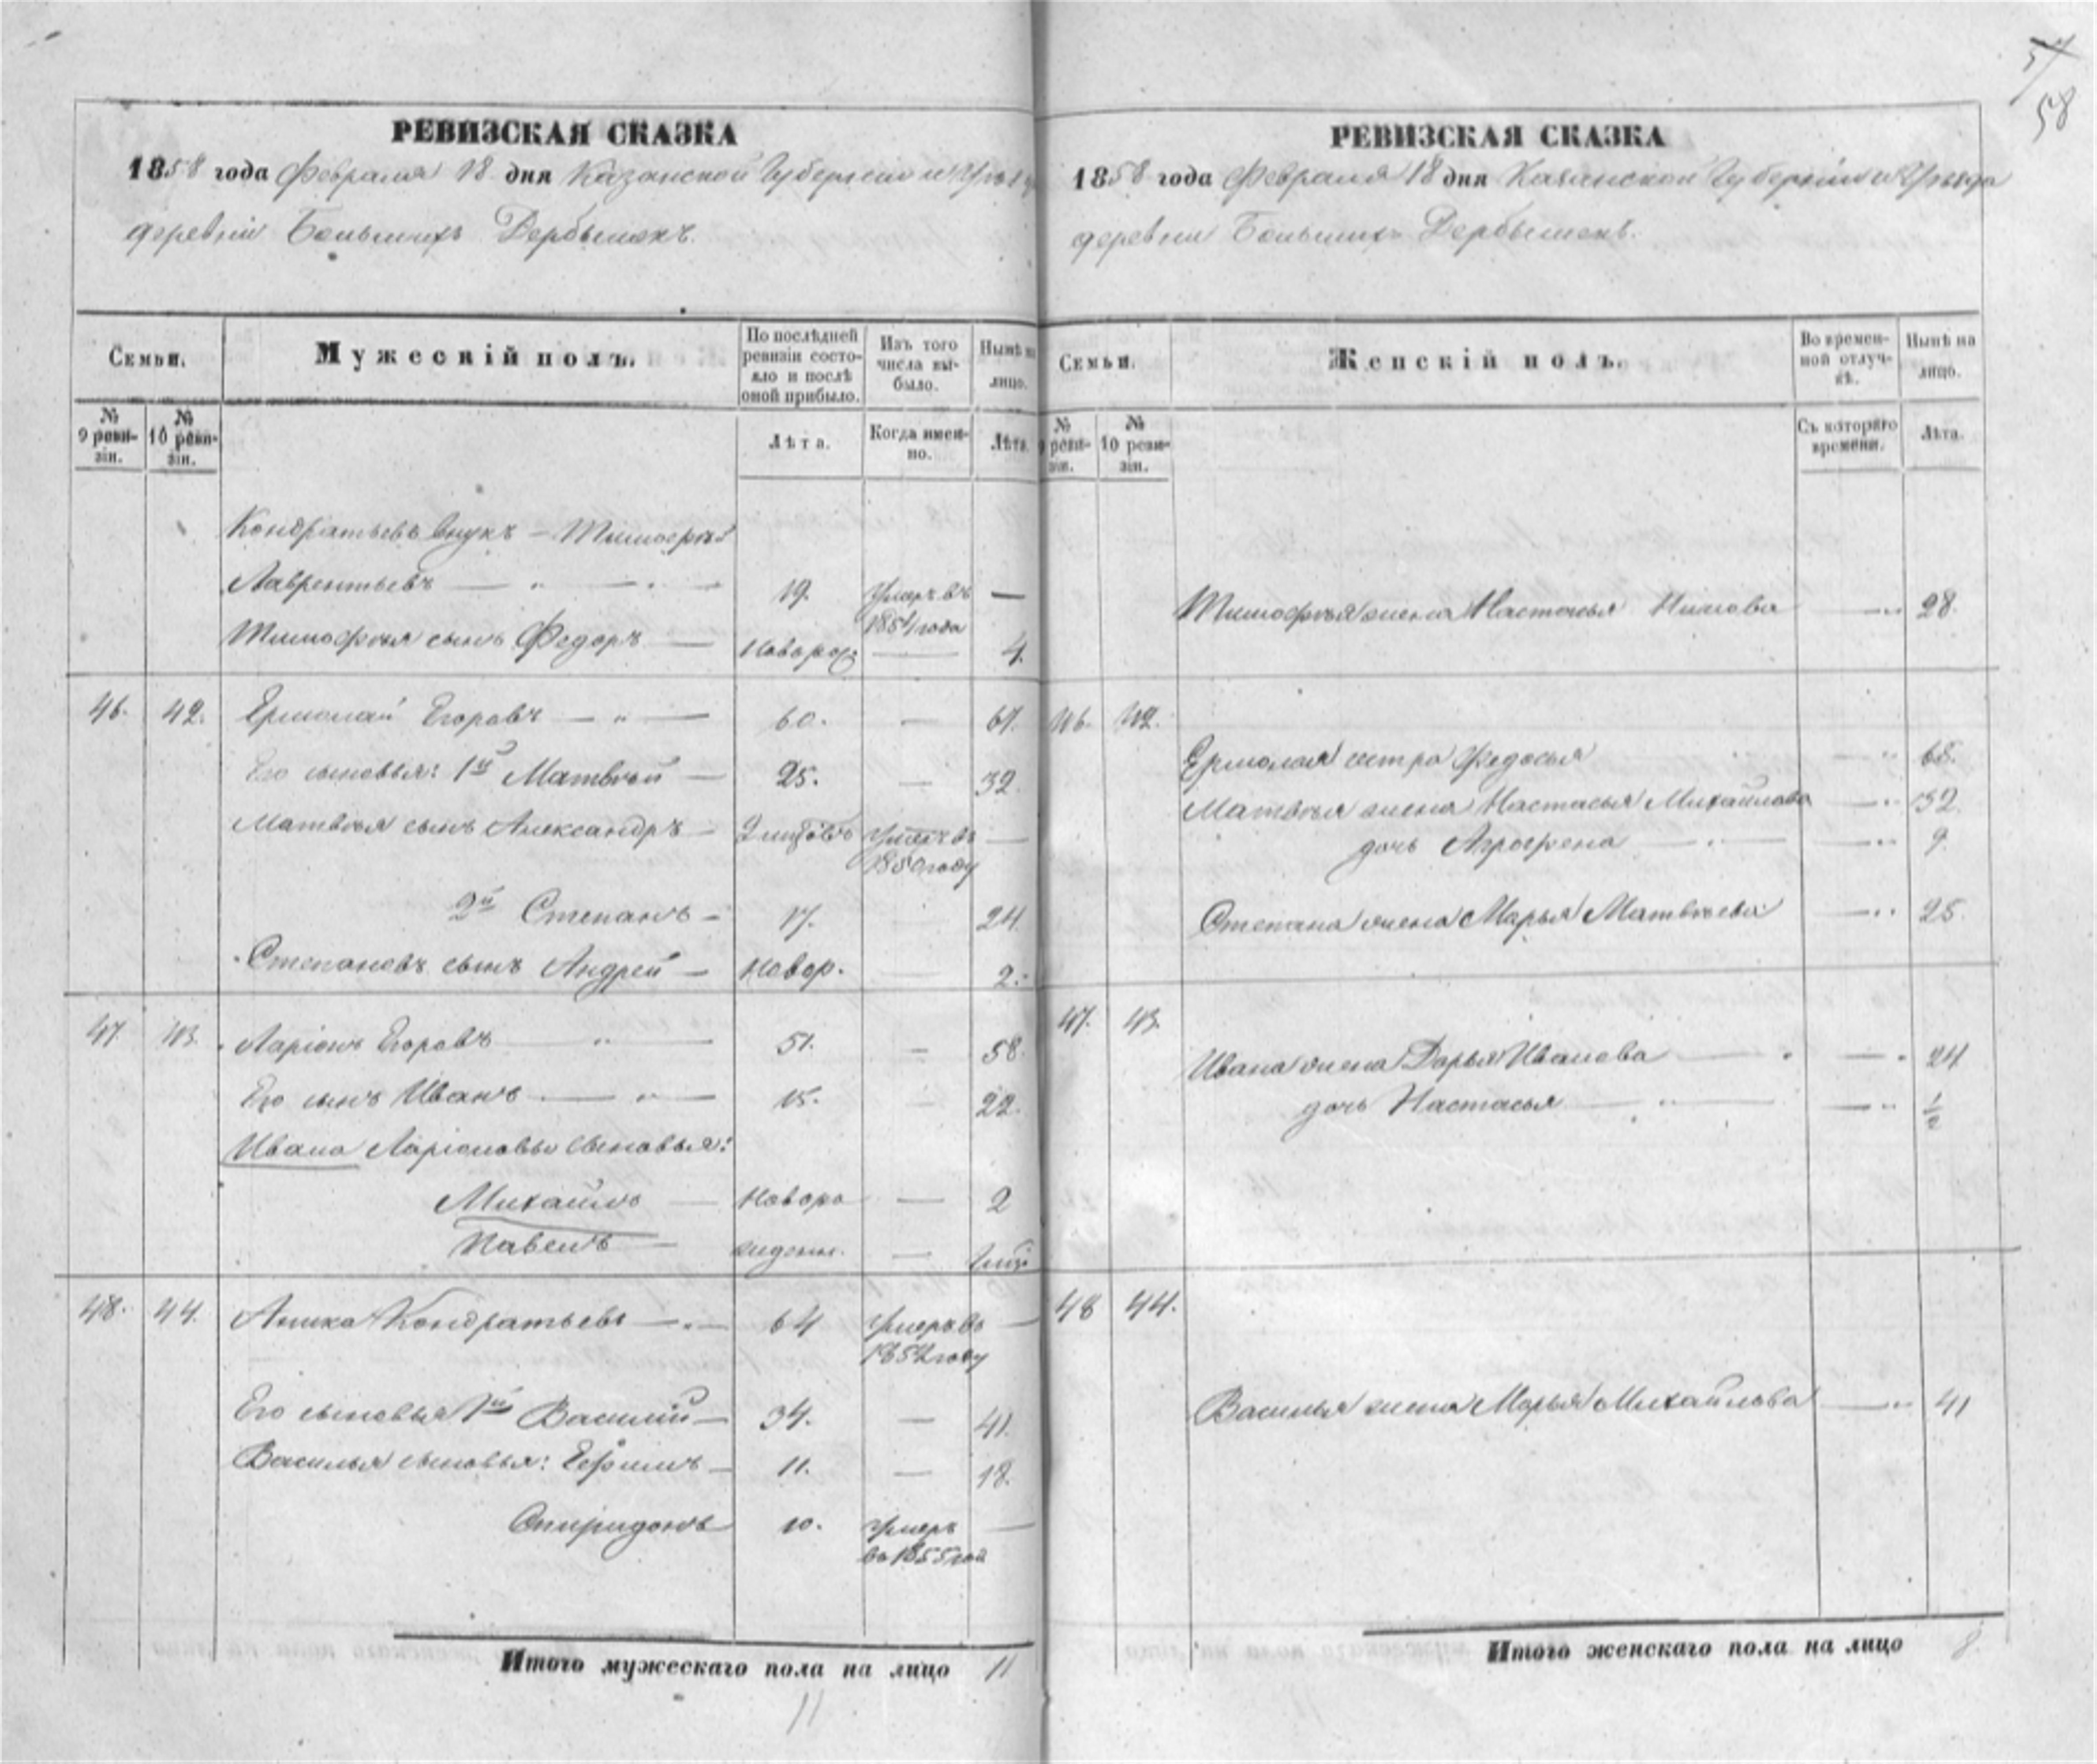 57
58
РЕВИЗСКАЯ СКАЗКА
1858 года Февраля 18 дня Казанской Губернiи и Уѣзда
деревни Большихъ Дербышекъ.
Семьи.
Мужескiй полъ.
По послѣдней ревизiи состояло и послѣ оной прибыло.
Изъ того числа выбыло.
Нынѣ на лицо.
№ 9 ревизiи.
№ 10 ревизiи.
Лѣта.
Когда именно.
Лѣта.
Кондратьевъ внукъ – Тимофѣй
Лаврентьевъ — " — " — 19. Умеръ въ 1854 года —
Тимофѣя сынъ Федоръ — Новорож: — 4.
46. 42. Ермолай Егоровъ — " — 60. — 67.
Его сыновья: 1й Матвѣй — 25. — 32.
Матвѣя сынъ Александръ — Умеръ въ 1850 году —
2й Степанъ – 17. 24.
Степановъ сынъ Андрей — Новор. — 2.
47. 43. Ларiонъ Егоровъ — " — 51. — 58.
Его сынъ Иванъ — " — 15. — 22.
Ивана Ларiоновы сыновья:
Михайло — Новоро — 2
Павелъ — жденн. —
48. 44. Аника Кондратьевъ — " — 64 Умеръ въ 1852 году —
Его сыновья 1й Василiй — 34. — 41.
Василья сыновья: Ефимъ — 11. — 18.
Спиридонъ 10. Умеръ въ 1855 год —
Итого мужескаго пола на лицо 11
11
РЕВИЗСКАЯ СКАЗКА
1858 года Февраля 18 дня Казанской Губернiи и Уѣзда
деревни Большихъ Дербышекъ.
Семьи.
Женскiй полъ.
Во временной отлучкѣ.
Нынѣ на лицо.
№ 9 ревизiи.
№ 10 ревизiи.
Съ котораго времени.
Лѣта.
Тимофѣя жена Настасья Нимова — " 28.
46. 42.
Ермолая сестра Федосья — " 65.
Матвѣя жена Настасья Михайлова — " 32.
дочь Агрофена — " — — " 9.
Степана жена Марья Матвѣева — " 25.
47. 43.
Ивана жена Дарья Иванова — " — " 24
дочь Настасья — " — — " 1/2
48 44.
Василья жена Марья Михайлова — " 41
Итого женскаго пола на лицо 8.